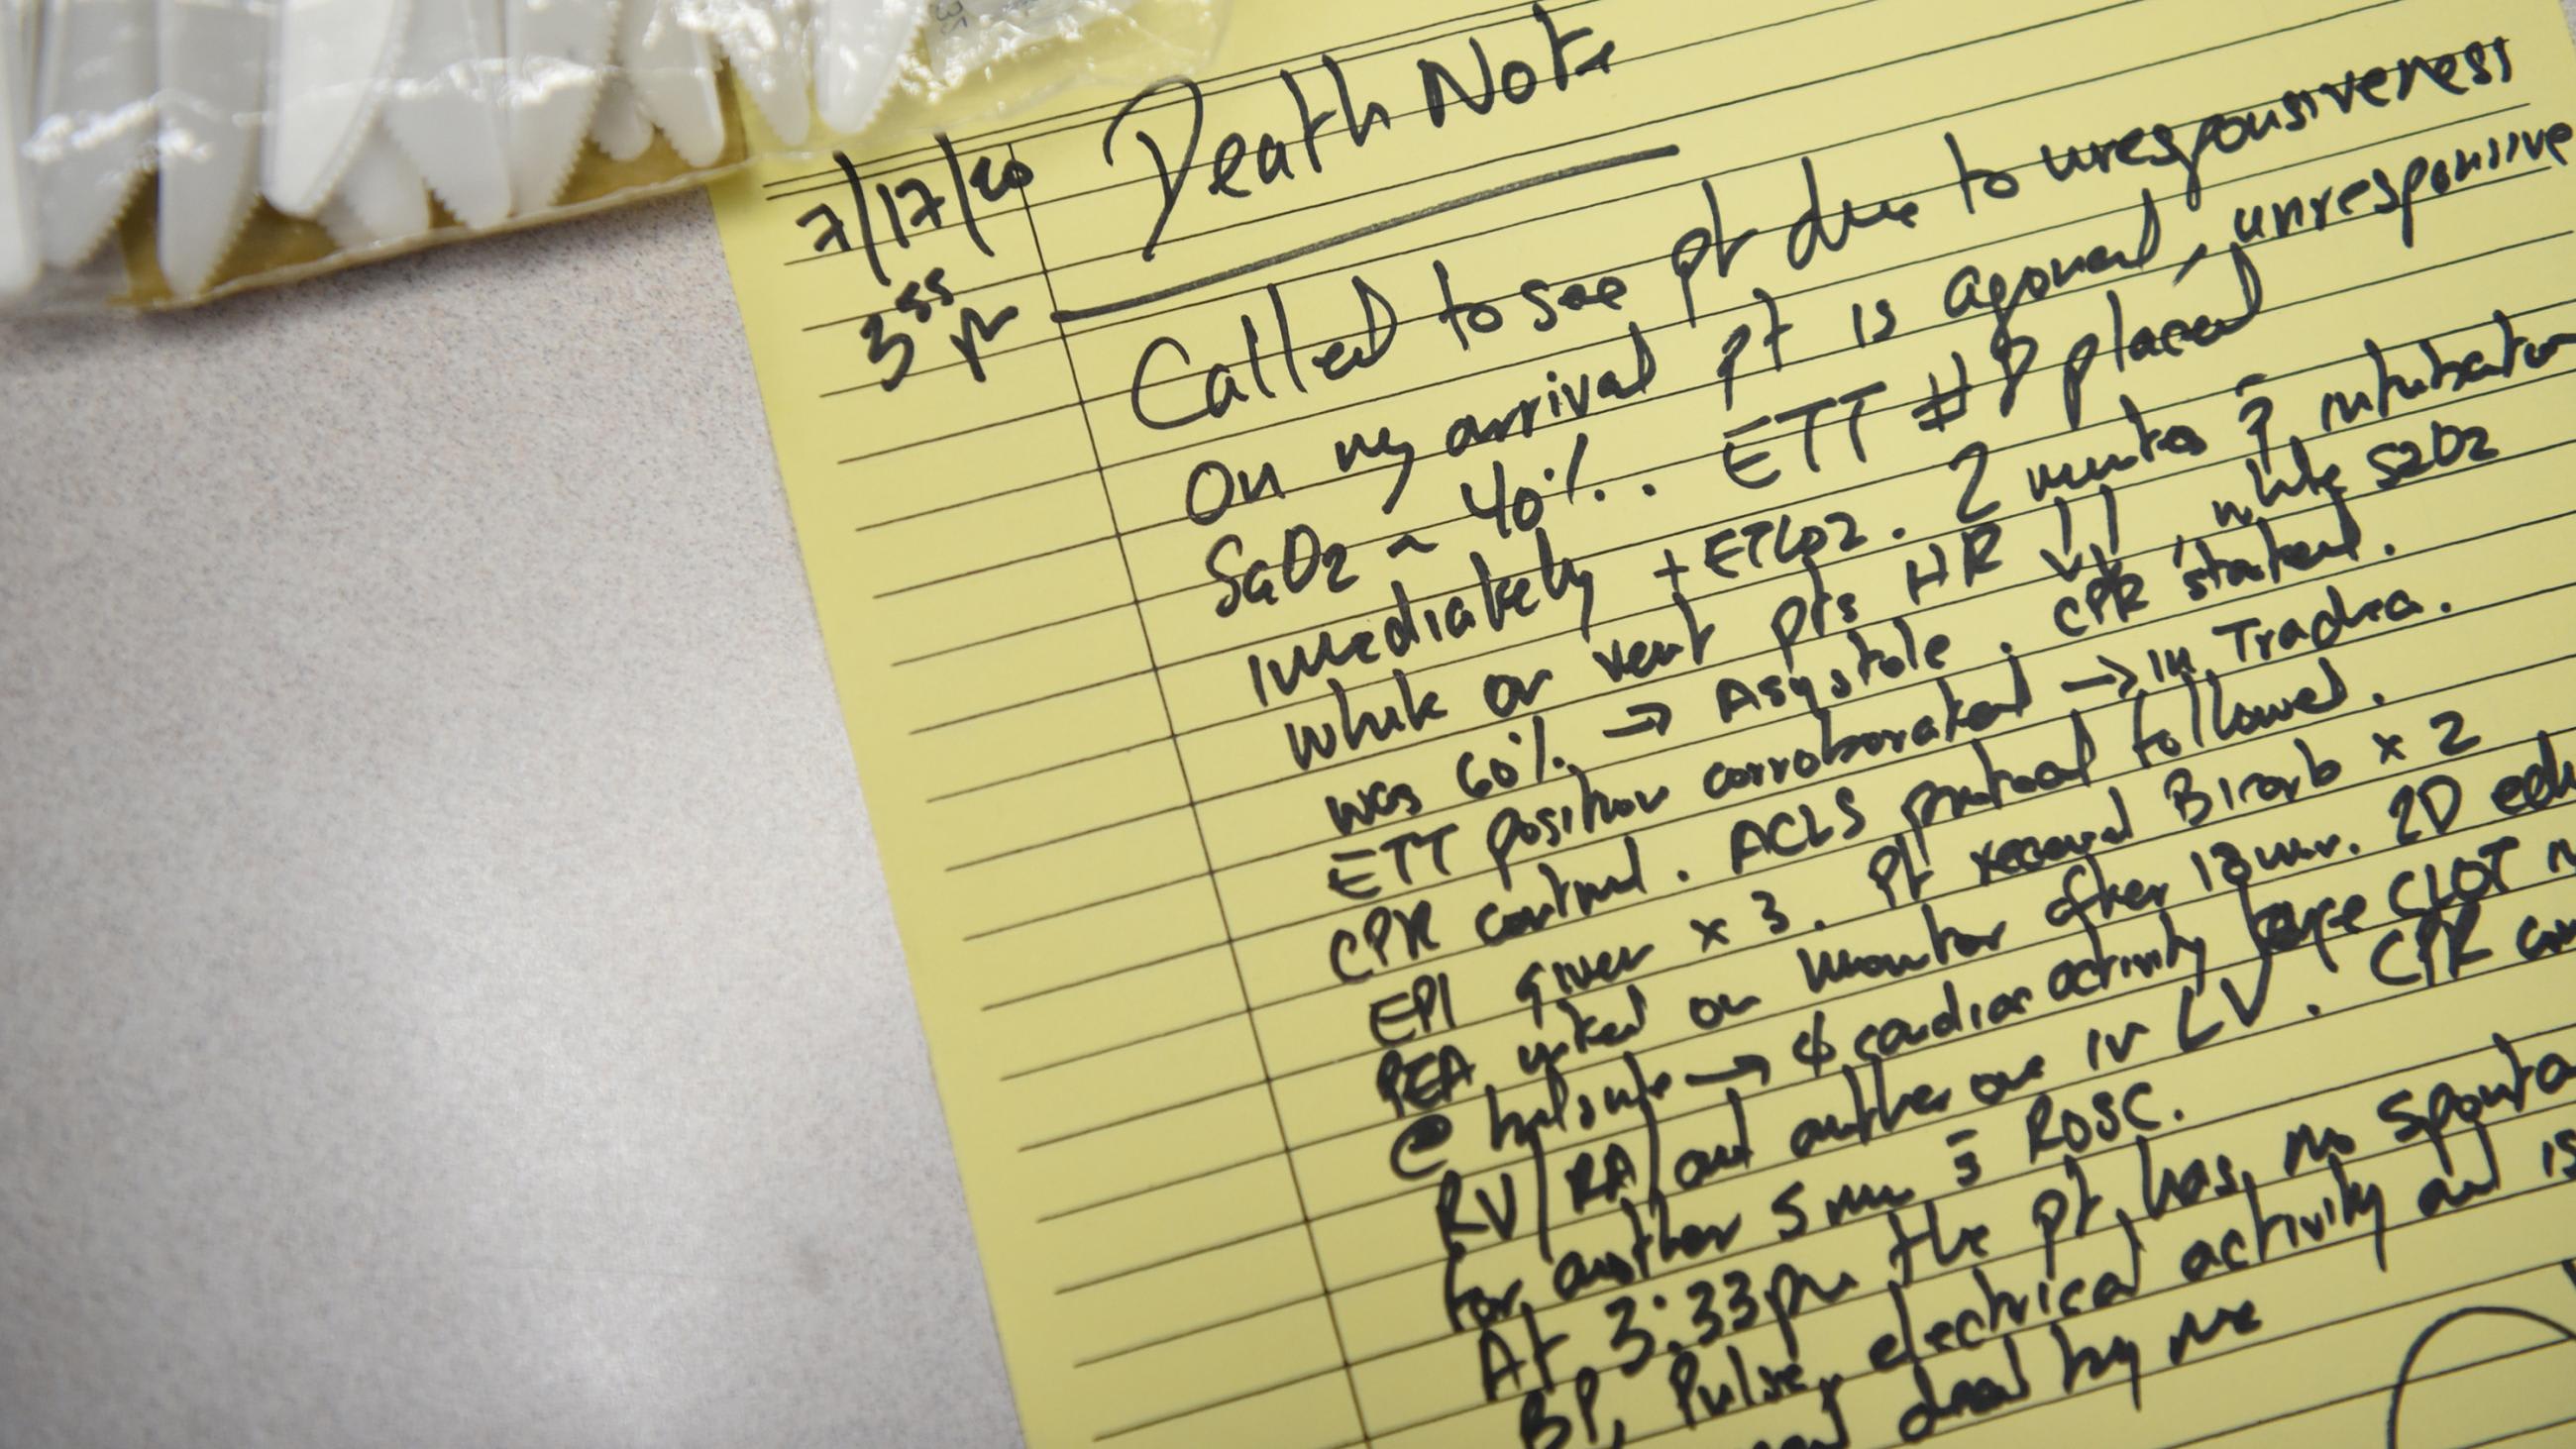 Death Note
7/17/20
3:55 pm
Called to see pt due to unresponsiveness
On my arrival pt is agonal, unresponsive
SaO2 ~ 40%. ETT #8 placed
immediately + ETCO2. 2 minutes p̄ intubation
while on vent pts HR ↓↓ while SaO2
was 60% → Asystole. CPR started.
ETT position corroborated → in Trachea.
CPR continued. ACLS protocol followed.
EPI given x 3. Pt received Bicarb x 2
PEA noted on monitor after 13 min. 2D
@ → ∅ cardiac activity large CLOT
RV/RA/ and another one in LV. CPR
for another 5 min s̄ ROSC.
At 3:33pm the pt has no
BP, Pulse, electrical activity and is
dead by me